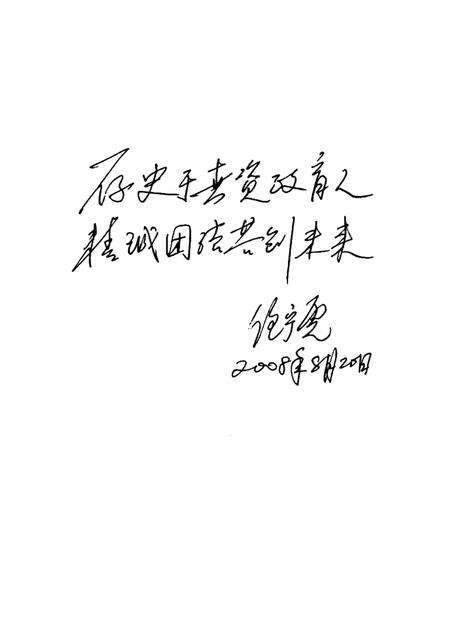 存史于真资政育人
精诚团结共创未来
2008年8月20日